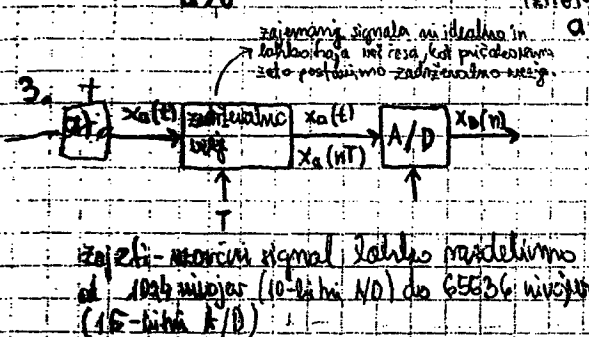 zajemanje signala ni idealno in
lahko traja več časa, kot pričakujemo
zato postavimo zadrževalno vezje.
3.
xa(t) zadrževalno xa(t) A/D xD(n)
vezje xa(nT)
T
zajeti - vzorčni signal lahko razdelimo
od 1024 nivojev (10-bitni A/D) do 65636 nivojev
(16-bitni A/D)